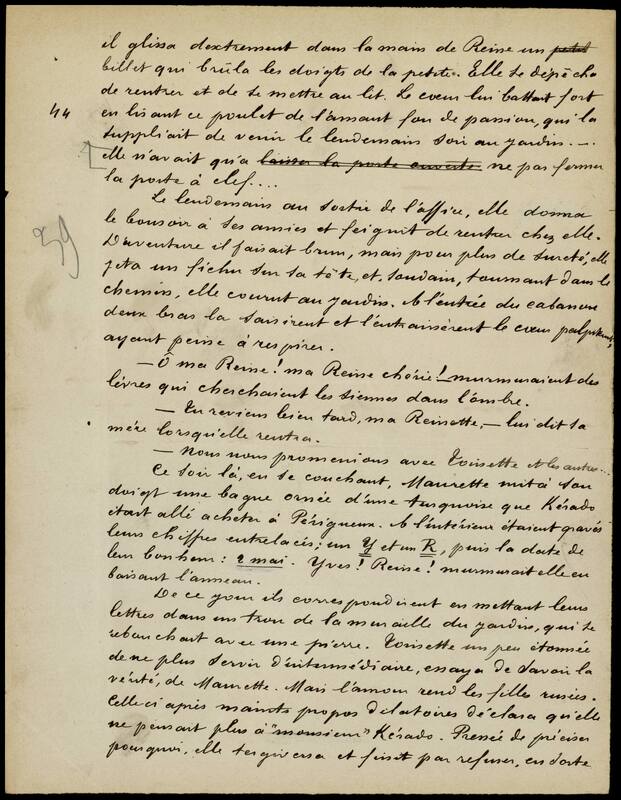 il glissa dextrement dans la main de Reine un petit
billet qui brûla les doigts de la petite. Elle se dépêcha
de rentrer et de se mettre au lit. Le cœur lui battait fort
44
en lisant ce poulet de l'amant fou de passion, qui la
suppliait de venir le lendemain soir au jardin. _._
elle n'avait qu'à laisser la porte ouverte ne pas fermer
la porte à clef....
Le lendemain au sortir de l'office, elle donna
39
le bonsoir à ses amies et feignit de rentrer chez elle.
D'aventure il faisait brun, mais pour plus de sureté, elle
jeta un fichu sur sa tête, et, soudain, tournant dans le
chemin, elle courut au jardin. A l'entrée du cabanon
deux bras la saisirent et l'entraînèrent le cœur palpitant,
ayant peine à respirer.
— Ô ma Reine! ma Reine chérie! — murmuraient des
lèvres qui cherchaient les siennes dans l'ombre.
— Tu reviens bien tard, ma Reinette, — lui dit sa
mère lorsqu'elle rentra.
— Nous nous promenions avec Toinette et les autres...
Ce soir là, en se couchant, Maurette mit à son
doigt une bague ornée d'une turquoise que Kérado
était allé acheter à Périgueux. A l'intérieur étaient gravés
leurs chiffres entrelacés; un Y et un R, puis la date de
leur bonheur: 2 mai. Yves! Reine! murmurait elle en
baisant l'anneau.
De ce jour ils correspondirent en mettant leurs
lettres dans un trou de la muraille du jardin, qui se
rebouchait avec une pierre. Toinette un peu étonnée
de ne plus servir d'intermédiaire, essaya de savoir la
vérité, de Maurette. Mais l'amour rend les filles rusées.
Celle ci après maints propos dilatoires déclara qu'elle
ne pensait plus à "monsieur" Kérado. Pressée de préciser
pourquoi, elle tergiversa et finit par refuser, en sorte